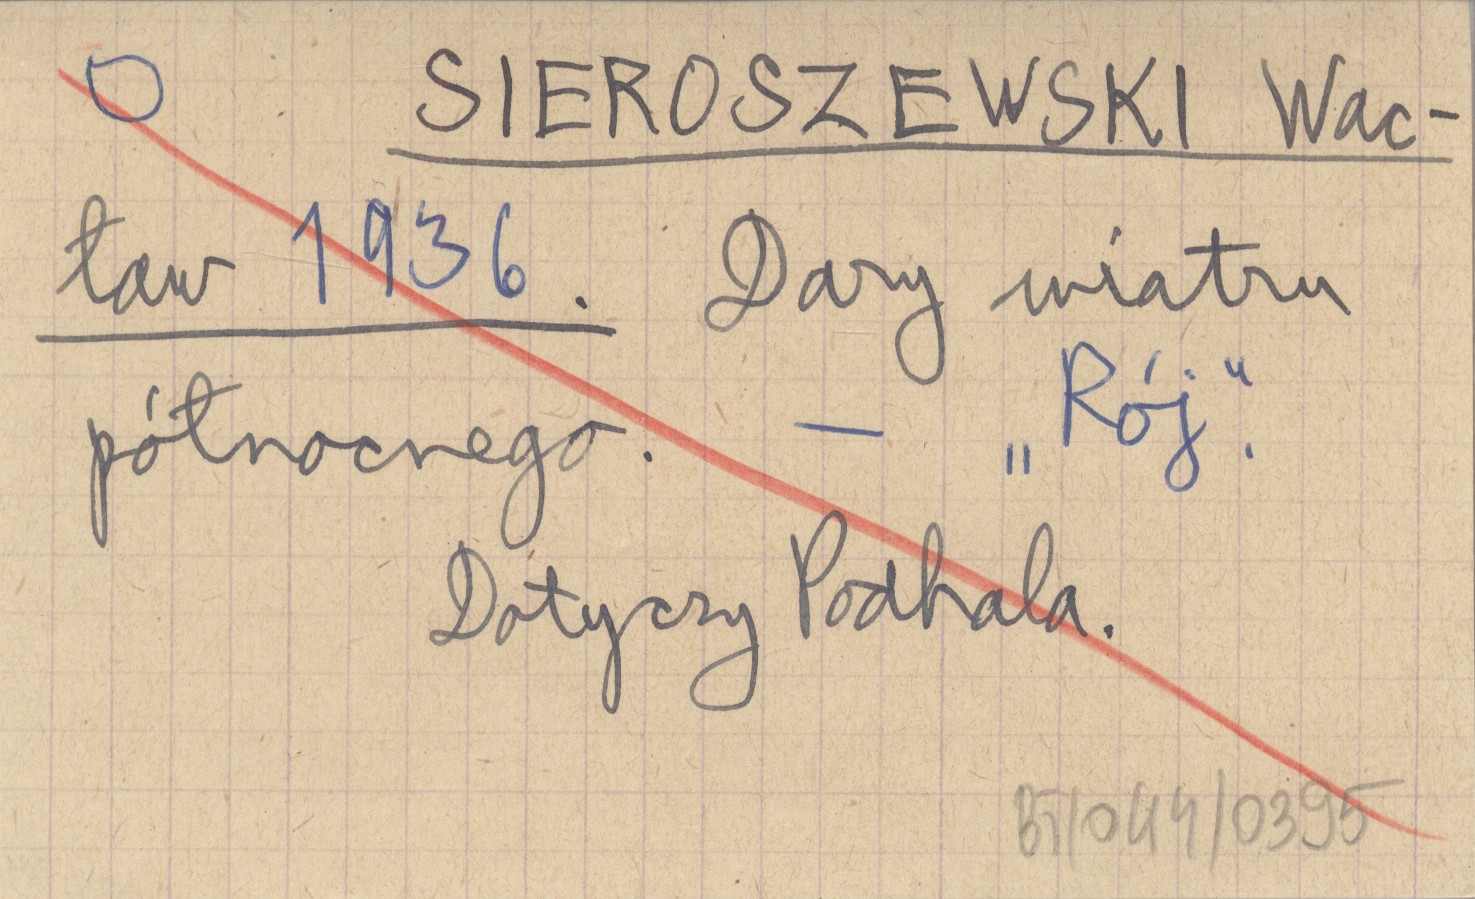 SIEROSZEWSKI Wac-
ław 1936. Dary wiatru
północnego. — „Rój".
Dotyczy Podhala.
BT/044/0395